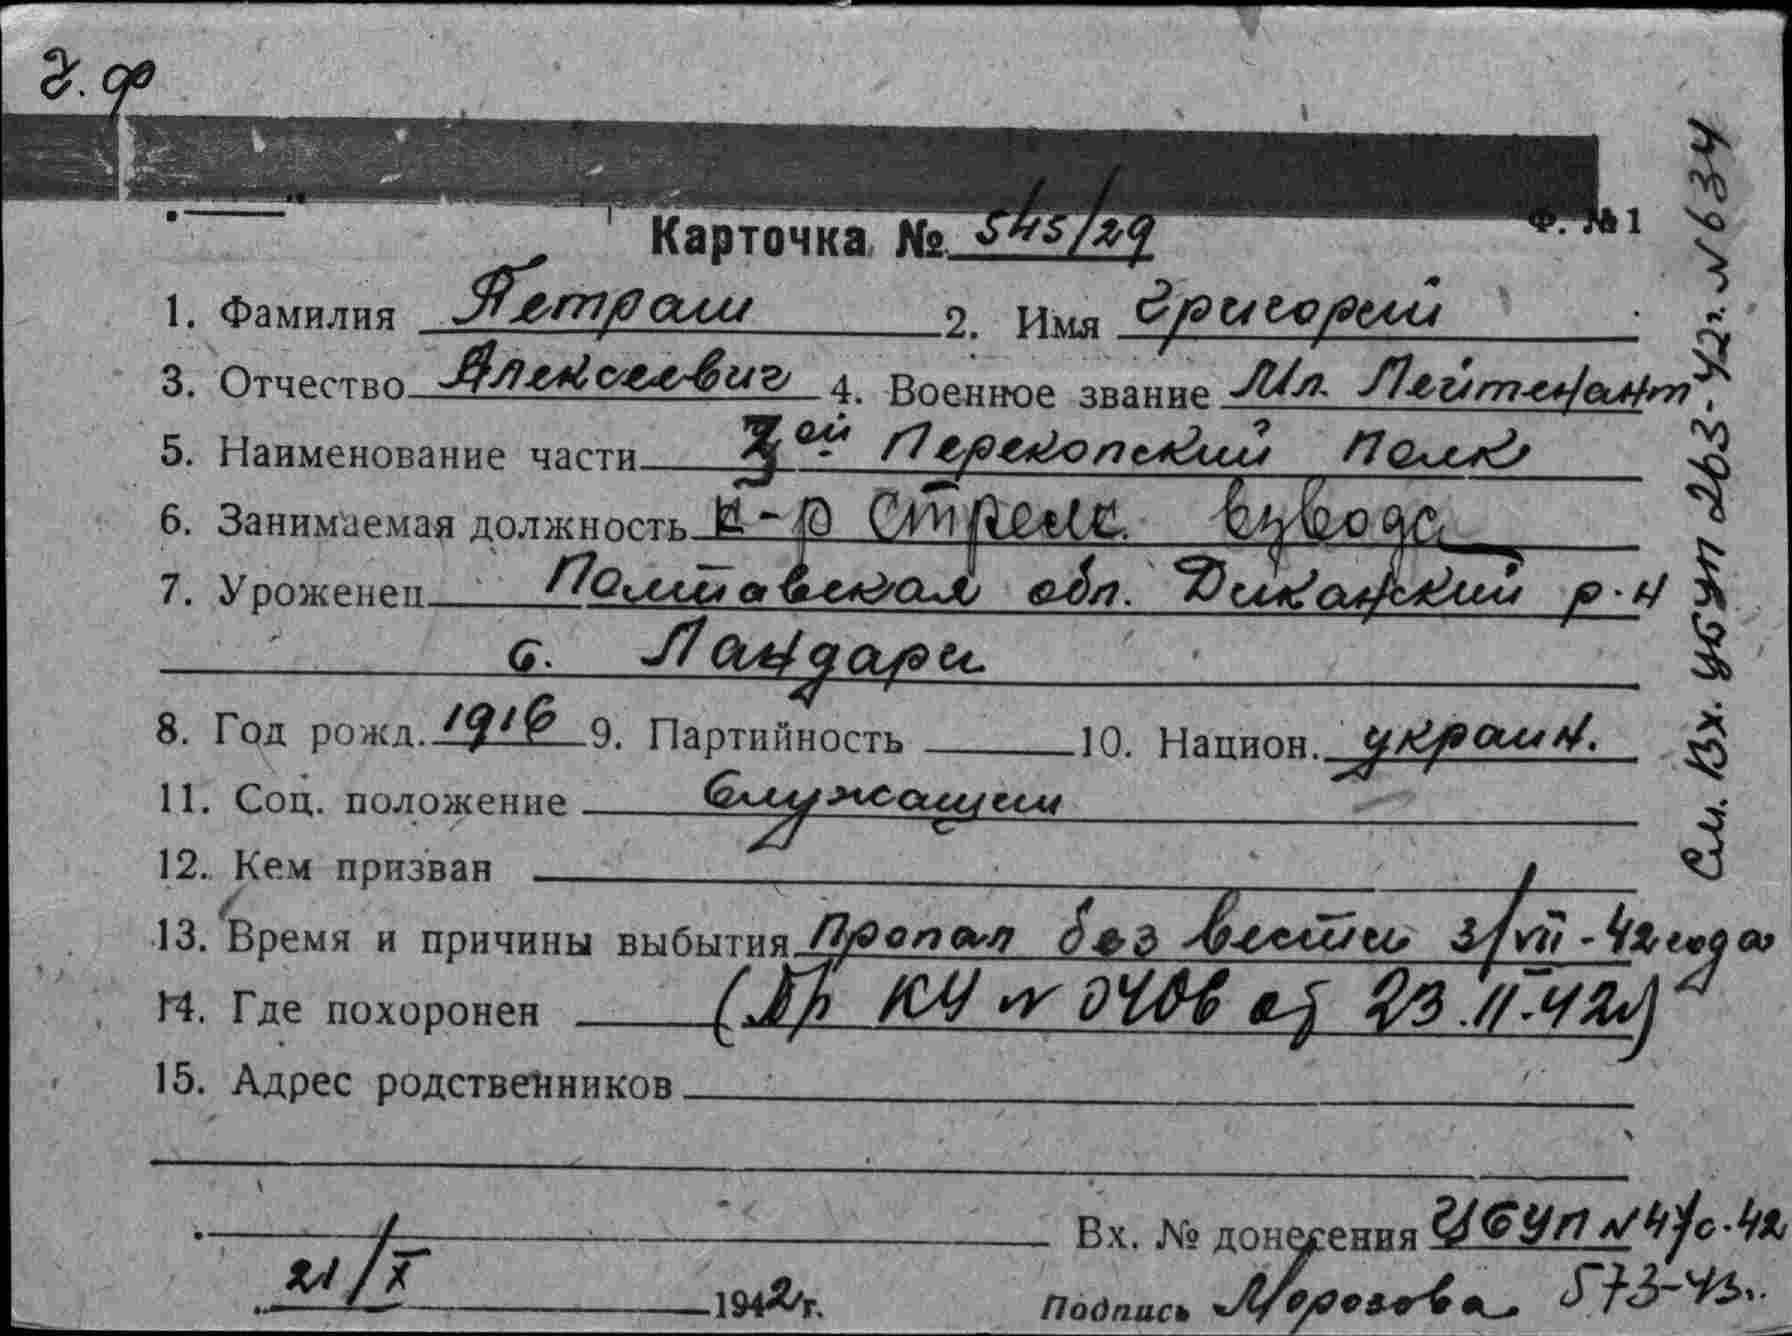 г. ф
Ф. № 1
Карточка № 545/29
1. Фамилия Петраш 2. Имя Григорий
3. Отчество Алексеевич 4. Военное звание Мл. Лейтенант
5. Наименование части 3ой Перекопский Полк
6. Занимаемая должность к-р стрелк. взвода
7. Уроженец Полтавская обл. Диканьский р-н
с. Пандари
8. Год рожд. 1916 9. Партийность 10. Национ. украин.
11. Соц. положение Служащий
12. Кем призван
13. Время и причины выбытия пропал без вести 3/VII-42 года
14. Где похоронен (Пр КЧ № 0406 от 23.11.42г)
15. Адрес родственников
Вх. № донесения ЦБУП № 47с-42
21/X 1942г.
Подпись Морозова 573-43г.
См. Вх. ЦБУП 263-42г. № 634